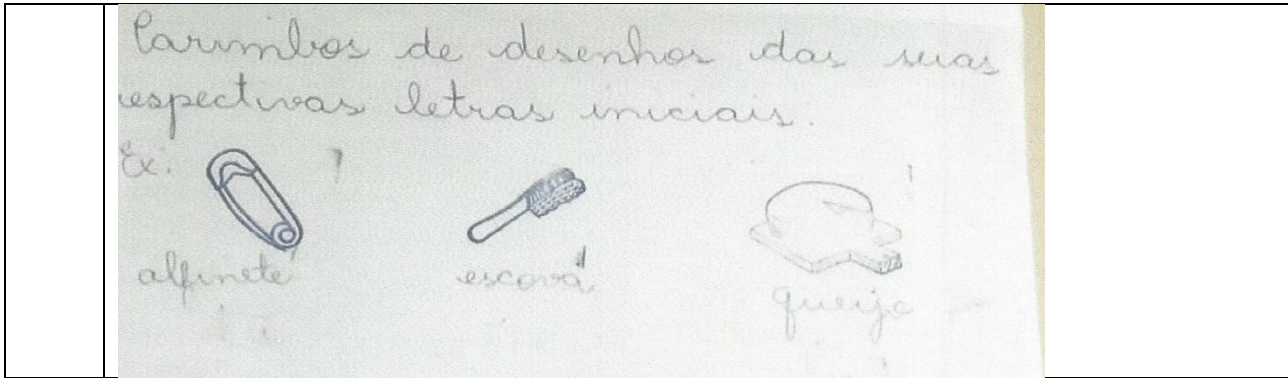 Carimbos de desenhos das suas
respectivas letras iniciais.
Ex:
alfinete escova queijo